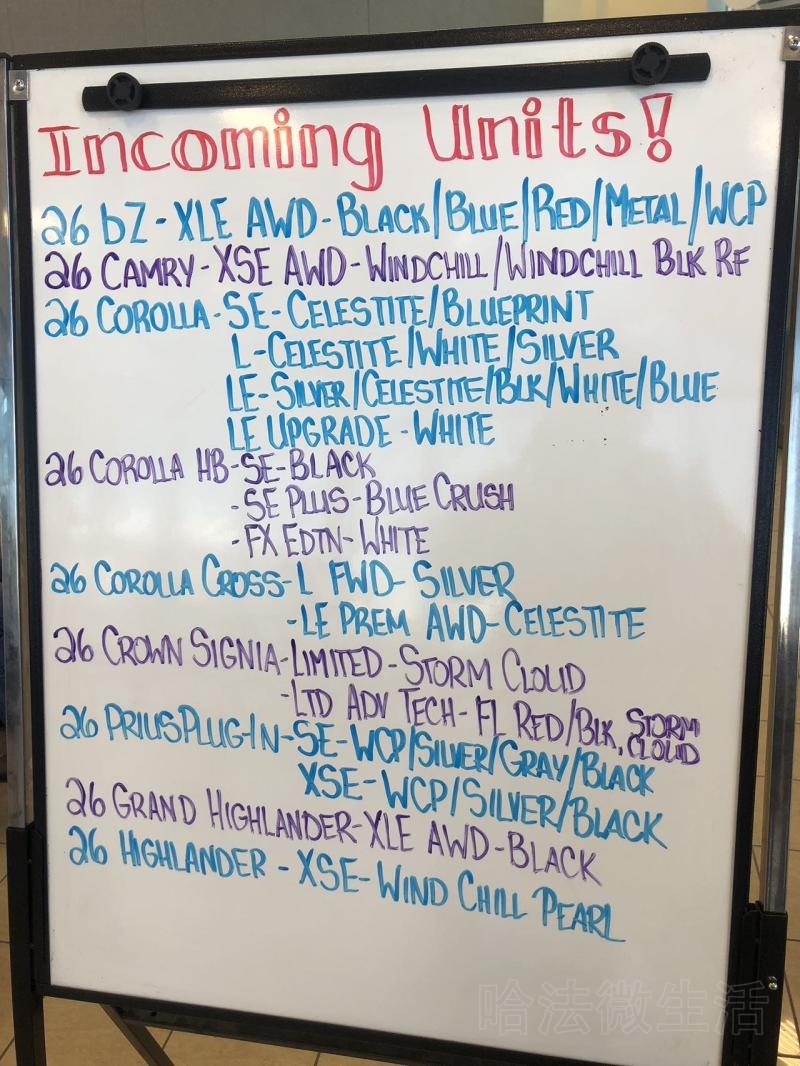 Incoming Units!
26 bZ - XLE AWD - BLACK/BLUE/RED/METAL/WCP
26 CAMRY - XSE AWD - WINDCHILL/WINDCHILL BLK RF
26 COROLLA - SE - CELESTITE/BLUEPRINT
L - CELESTITE/WHITE/SILVER
LE - SILVER/CELESTITE/BLK/WHITE/BLUE
LE UPGRADE - WHITE
26 COROLLA HB - SE - BLACK
- SE PLUS - BLUE CRUSH
- FX EDTN - WHITE
26 COROLLA CROSS - L FWD - SILVER
- LE PREM AWD - CELESTITE
26 CROWN SIGNIA - LIMITED - STORM CLOUD
- LTD ADV TECH - FI RED/BLK, STORM CLOUD
26 PRIUS PLUG-IN - SE - WCP/SILVER/GRAY/BLACK
XSE - WCP/SILVER/BLACK
26 GRAND HIGHLANDER - XLE AWD - BLACK
26 HIGHLANDER - XSE - WIND CHILL PEARL
哈法微生活